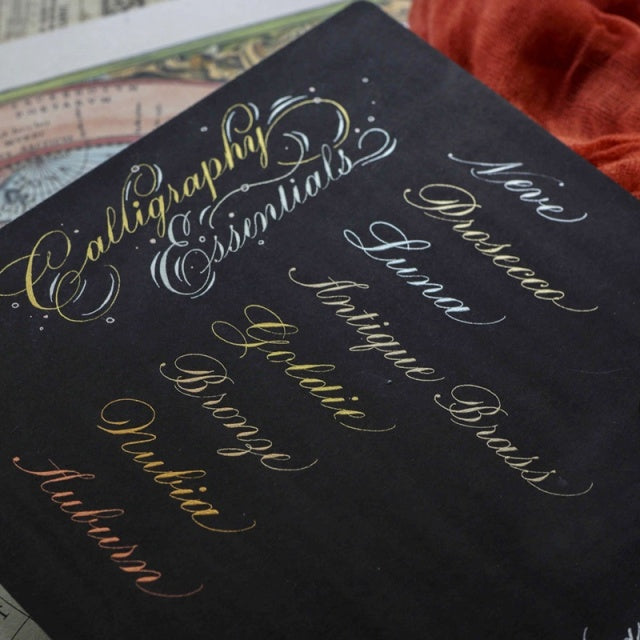 Calligraphy
Essentials
Neve
Prosecco
Luna
Antique Brass
Goldie
Bronze
Nubia
Auburn